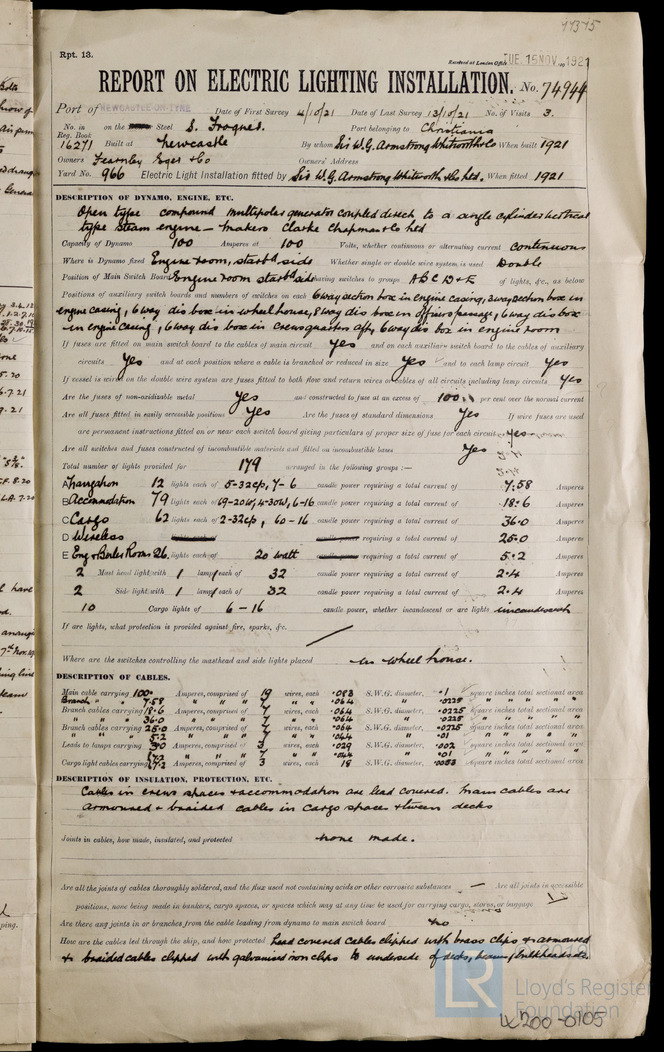 77375
Rpt. 13.
Received at London Office TUE. 15 NOV. 1921
REPORT ON ELECTRIC LIGHTING INSTALLATION. No. 74944
Port of NEWCASTLE-ON-TYNE Date of First Survey 4/10/21 Date of Last Survey 13/10/21 No. of Visits 3.
No. in Reg. Book on the Steel S. Port belonging to Christiania
16271 Built at Newcastle By whom Sir W.G. Armstrong Whitworth & Co When built 1921
Owners Fearnley Eger & Co Owners' Address
Yard No. 966 Electric Light Installation fitted by Sir W.G. Armstrong Whitworth & Co Ltd. When fitted 1921
DESCRIPTION OF DYNAMO, ENGINE, ETC.
Open type compound multipolar generator coupled direct to a single cylinder vertical
type steam engine — makers Clarke Chapman & Co Ltd
Capacity of Dynamo 100 Amperes at 100 Volts, whether continuous or alternating current continuous
Where is Dynamo fixed Engine room, starbd side Whether single or double wire system is used Double
Position of Main Switch Board Engine room starbd side having switches to groups A B C D & E of lights, &c., as below
Positions of auxiliary switch boards and numbers of switches on each 6 way section box in engine casing, 3 way section box in
engine casing, 6 way dis box in wheel house, 8 way dis box in officers passage, 6 way dis box
in engine casing, 6 way dis box in crews quarters aft, 6 way dis box in engine room
If fuses are fitted on main switch board to the cables of main circuit Yes and on each auxiliary switch board to the cables of auxiliary
circuits Yes and at each position where a cable is branched or reduced in size Yes and to each lamp circuit Yes
If vessel is wired on the double wire system are fuses fitted to both flow and return wires or cables of all circuits including lamp circuits Yes
Are the fuses of non-oxidizable metal Yes and constructed to fuse at an excess of 100 per cent over the normal current
Are all fuses fitted in easily accessible positions Yes Are the fuses of standard dimensions Yes If wire fuses are used
are permanent instructions fitted on or near each switch board giving particulars of proper size of fuse for each circuit Yes
Are all switches and fuses constructed of incombustible materials and fitted on incombustible bases Yes
Total number of lights provided for 179 arranged in the following groups :—
A Navigation 12 lights each of 5-32cp, 7-6 candle power requiring a total current of 7.58 Amperes
B Accommodation 79 lights each of 69-20w, 4-30w, 6-16 candle power requiring a total current of 18.6 Amperes
C Cargo 62 lights each of 2-32cp, 60-16 candle power requiring a total current of 36.0 Amperes
D Wireless requiring a total current of 25.0 Amperes
E Eng & Boiler Rooms 26 lights each of 20 watt requiring a total current of 5.2 Amperes
2 Mast head light with 1 lamp each of 32 candle power requiring a total current of 2.4 Amperes
2 Side light with 1 lamp each of 32 candle power requiring a total current of 2.4 Amperes
10 Cargo lights of 6-16 candle power, whether incandescent or arc lights incandescent
If arc lights, what protection is provided against fire, sparks, &c.
Where are the switches controlling the masthead and side lights placed in wheel house.
DESCRIPTION OF CABLES.
Main cable carrying 100 Amperes, comprised of 19 wires, each .083 S.W.G. diameter, .1 square inches total sectional area
Branch " " 7.58 " " " 7 " " .064 " " .0225 " " " "
Branch cables carrying 18.6 Amperes, comprised of 7 wires, each .064 S.W.G. diameter, .0225 square inches total sectional area
" " " 36.0 " " " 7 " " .064 " " .0225 " " " "
Branch cables carrying 25.0 Amperes, comprised of 7 wires, each .064 S.W.G. diameter, .0225 square inches total sectional area
" " " 5.2 " " " 7 " " .044 " " .01 " " " "
Leads to lamps carrying Amperes, comprised of 3 wires, each .029 S.W.G. diameter, .002 square inches total sectional area
Cargo light cables carrying 7.2 Amperes, comprised of 3 wires, each 18 S.W.G. diameter, square inches total sectional area
DESCRIPTION OF INSULATION, PROTECTION, ETC.
Cables in crews spaces & accommodation are lead covered. Main cables are
armoured & braided cables in cargo spaces & tween decks
Joints in cables, how made, insulated, and protected none made.
Are all the joints of cables thoroughly soldered, and the flux used not containing acids or other corrosive substances — Are all joints in accessible
positions, none being made in bunkers, cargo spaces, or spaces which may at any time be used for carrying cargo, stores, or baggage
Are there any joints in or branches from the cable leading from dynamo to main switch board no
How are the cables led through the ship, and how protected Lead covered cables clipped with brass clips & armoured
& braided cables clipped with galvanised iron clips to underside of decks, beams, bulkheads etc.
LR
Lloyd's Register
Foundation